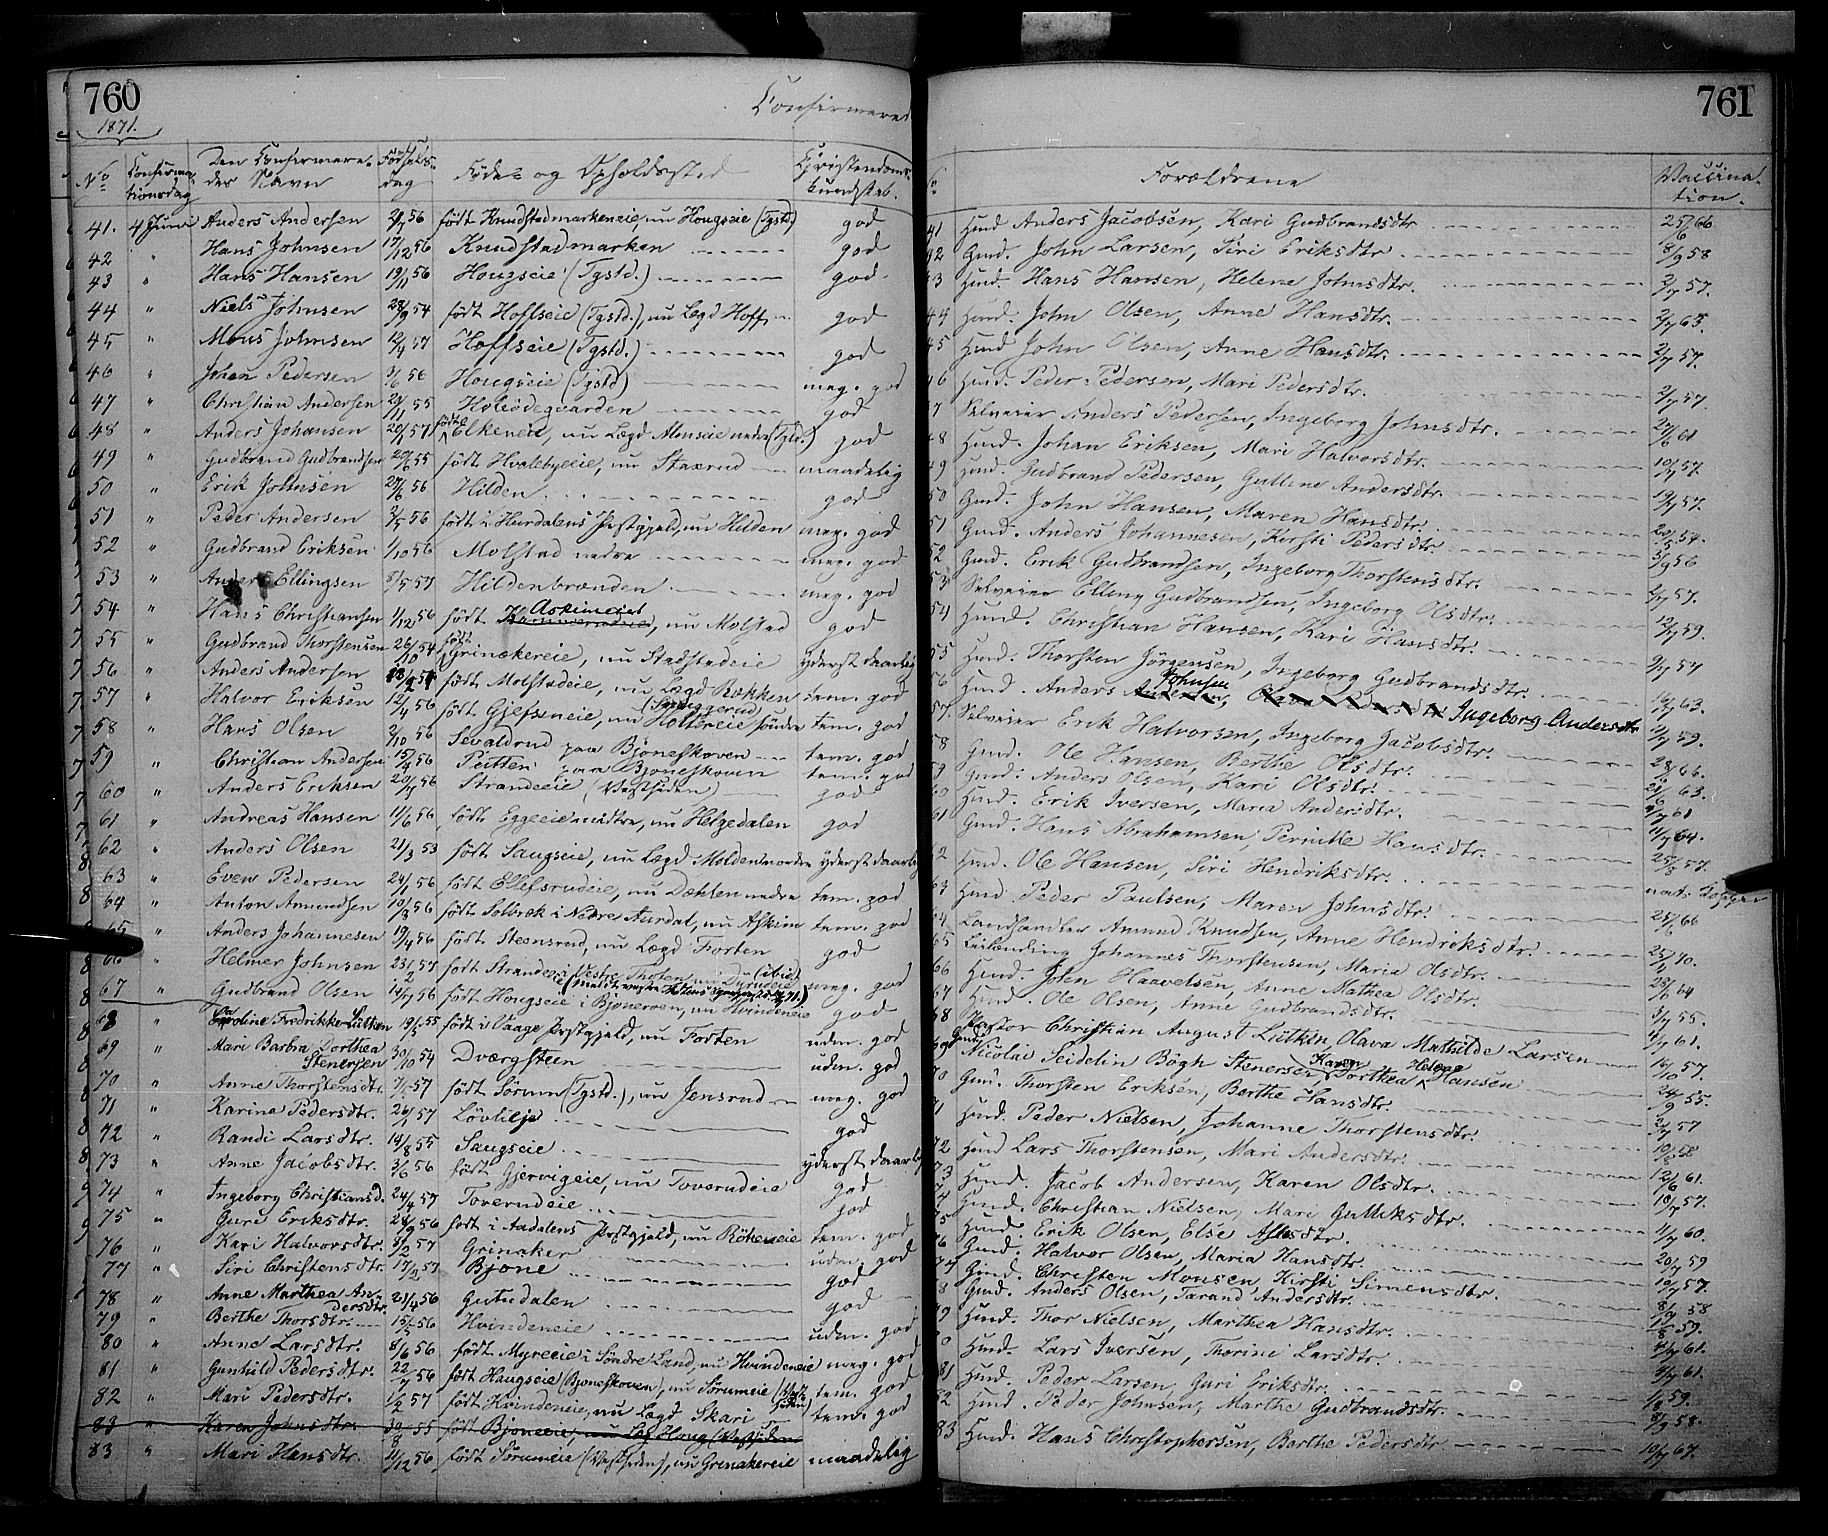 760
1871.
Confirmered
No Confirma- Den Confirmere- Fødsels- Føde- og Opholdssted Christendoms-
tionsdag des Navn dag kundskab.
41. 4 Juni Anders Andersen 56 født Knudstadmarkeneie, nu Hougseie (Tgstd.) god
42 " Hans Johnsen 17/12 56 Knudstadmarken god
43 " Hans Hansen 19/11 56 Hougseie (Tgstd.) god
44 " Niels Johnsen 28/9 54 født Hoffseie (Tgstd.), nu Lægd Hoff god
45 " Mons Johnsen 12/4 57 Hoffseie (Tgstd.) god
46 " Johan Pedersen 9/6 56 Hougseie (Tgstd) meg. god
47 " Christian Andersen 55 Holsødegaarden god
48 " Anders Johansen 20/1 57 født Elkeneie, nu Lægd god
49 " Gudbrand Gudbrandsen 20/6 55 født Hvalebyeie, nu Staxrud maadelig
50 " Erik Johnsen 27/6 56 Hilden god
51 " Peder Andersen 2/5 56 født i Hurdalens Præstgjeld, nu Hilden meg. god
52 " Gudbrand Eriksen 1/10 56 Molstad nedre meg. god
53 " Anders Ellingsen 5/5 57 Hildenbrænden meg. god
54 " Hans Christiansen 1/12 56 født Askimeiet, nu Molstad god
55 " Gudbrand Thorstensen 26/10 54 født Grinakereie, nu Stadstadeie yderst daarlig
56 " Anders Andersen født Molstadeie, nu Lægd Røkken tem. god
57 " Halvor Eriksen 12/4 56 født Gjefseneie, nu Hottereie søndre tem. god
58 " Hans Olsen 2/10 56 Sevaldrud paa Bjoneskoven tem. god
59 " Christian Andersen 15/4 56 Putten paa Bjoneskoven tem. god
60 " Anders Eriksen 20/7 56 Strandeeie (Vestsiden) god
61 " Andreas Hansen 11/6 56 født Eggeeie nedre, nu Helgedalen god
62 " Anders Olsen 21/3 53 født Saugseie, nu Lægd Molden nordre yderst daarlig
63 " Even Pedersen 24/1 56 født Ellefsrudeie, nu Dæhlen nedre tem. god
64 " Anton Amundsen 10/8 56 født Solbræk i Nordre Aurdal, nu Askim tem. god
65 " Anders Johannesen 19/4 56 født Steensrud, nu Lægd Forten god
66 Helmer Johnsen 23/2 57 født Strandeeie Vestre Thoten meg. god
67 " Gudbrand Olsen 14/7 56 født Hougseie i Bjoneroen, nu Hvindeneie god
68 " Caroline Fredrikke Lütken 19/5 55 født i Vaage Præstgjeld, nu Forten udm. god
69 " Mari Barbra Dorthea
Stenersen 30/10 54 Dværgsteen udm. god
70 " Anne Thorstensdtr. 57 født Sørum (Tgstd.), nu Jensrud meg. god
71 " Karine Pedersdtr. 26/1 57 Løvlilje god
72 " Randi Larsdtr. 14/8 55 Saugseie god
73 " Anne Jacobsdtr. 3/6 56 født Gjervigeie, nu Toverudeie yderst daarlig
74 " Ingeborg Christiansd. 24/4 57 Toverudeie god
75 " Guri Eriksdtr. 28/9 56 født i Aadalens Præstgjeld, nu Rökeneie tem. god
76 " Kari Halvorsdtr. 8/2 57 Grinaker udm. god
77 " Siri Christensdtr. 17/2 57 Bjone god
78 " Anne Marthea An-
dersdtr. 21/4 56 Gutudalen god
79 " Berthe Thorsdtr. 15/5 56 Hvindeneie udm. god
80 " Anne Larsdtr. 8/6 56 født Myreeie i Søndre Land, nu Hvindeneie meg. god
81 " Gunhild Pedersdtr. 22/7 56 født Haugseie (Bjoneskoven), nu Sørumeie (Vestsiden) tem. god
82 " Mari Pedersdtr. 1/2 57 født Hvindeneie, nu Lægd Skari tem. god
83 " Karen Johnsdtr. 30/8 55 født Bjoneeie, nu Houg (Vestsiden
83 " Mari Hansdtr. 11/12 56 født Sørumeie (Vestsiden), nu Grinakereie maadelig
761
No Forældrene Vaccina-
tion.
41 Huusd Anders Jacobsen, Kari Gudbrandsdtr 25/6 66
42 Gmd. John Larsen, Siri Eriksdtr 8/9 58
43 Huusd. Hans Hansen, Helene Johnsdtr. 2/7 57.
44 Huusd. John Olsen, Anne Hansdtr. 2/7 65.
45 Huusd John Olsen, Anne Hansdtr. 2/7 57.
46 Huusd. Peder Pedersen, Mari Pedersdtr. 2/7 57.
47 Selveier Anders Pedersen, Ingeborg Johnsdtr. 27/6 61
48 Huusd. Johan Eriksen, Mari Halvorsdtr. 10/7 57.
49 Huusd. Gudbrand Pedersen, Gulline Andersdtr. 19/7 57.
50 Gmd. John Hansen, Maren Hansdtr. 57.
51 Gmd. Anders Johannesen, Kirsti Pedersdtr 5/9 56
52 Gmd. Erik Gudbrandsen, Ingeborg Thorstensdtr. 57.
53 Selveier Elling Gudbrandsen, Ingeborg Olsdtr. 12/7 59.
54 Huusd. Christian Hansen, Kari Hansdtr. 2/7 57
55 Huusd. Thorsten Jörgensen, Ingeborg Gudbrandsdtr. 63.
56 Huusd. Anders Johnsen Ingeborg Andersdtr 59.
57. Selveier Erik Halvorsen, Ingeborg Jacobsdtr. 66.
58 Gmd. Ole Hansen, Berthe Olsdtr. 63.
59 Gmd. Anders Olsen, Kari Olsdtr. 61
60 Huusd. Erik Iversen, Maria Andersdtr. 64.
61 Gmd. Hans Abrahamsen, Pernille Hansdtr. 25/8 57.
62 Huusd. Ole Hansen, Siri Hendriksdtr.
63 Huusd. Peder Paulsen, Maren Johnsdtr. 25/6 66
64 Landhandler Amund Knudsen, Anne Hendriksdtr. 70.
65 Leilænding Johannes Thorstensen, Maria Olsdtr. 64
66 Huusd. John Haavelsen, Anne Mathea Olsdtr. 3/7 55.
67 Huusd. Ole Olsen, Anne Gudbrandsdtr. 4/7 61.
68 Pastor Christian August Lütken, Olava Mathilde Larsen 57.
69 Nicolai Seidelin Bögh Stenersen, Karen Dorthea Helene Hansen 24/9 55.
70 Gmd. Thorsten Eriksen, Berthe Hansdtr. 57
71 Huusd. Peder Nielsen, Johanne Thorstensdtr.
72 Huusd Lars Thorstensen, Mari Andersdtr. 12/6 61.
73 Huusd. Jacob Andersen, Karen Olsdtr. 57.
74 Huusd. Christian Nielsen, Mari Gulliksdtr. 4/7 60.
75 Huusd. Erik Olsen, Else Aslesdtr. 59
76 Gmd. Halvor Olsen, Maria Hansdtr. 57.
77 Gmd. Christen Monsen, Kirsti Simensdtr. 8/9 58
78 Gmd. Anders Olsen, Tarand Andersdtr. 59.
79 Huusd. Thor Nielsen, Marthea Hansdtr. 61.
80 Huusd. Lars Iversen, Thorine Larsdtr. 61.
81 Huusd. Peder Larsen, Guri Eriksdtr. 59.
82 Huusd. Peder Johnsen, Marthe Gudbrandsdtr. 58.
83 Huusd. Hans Christophersen, Berthe Pedersdtr. 10/7 67.